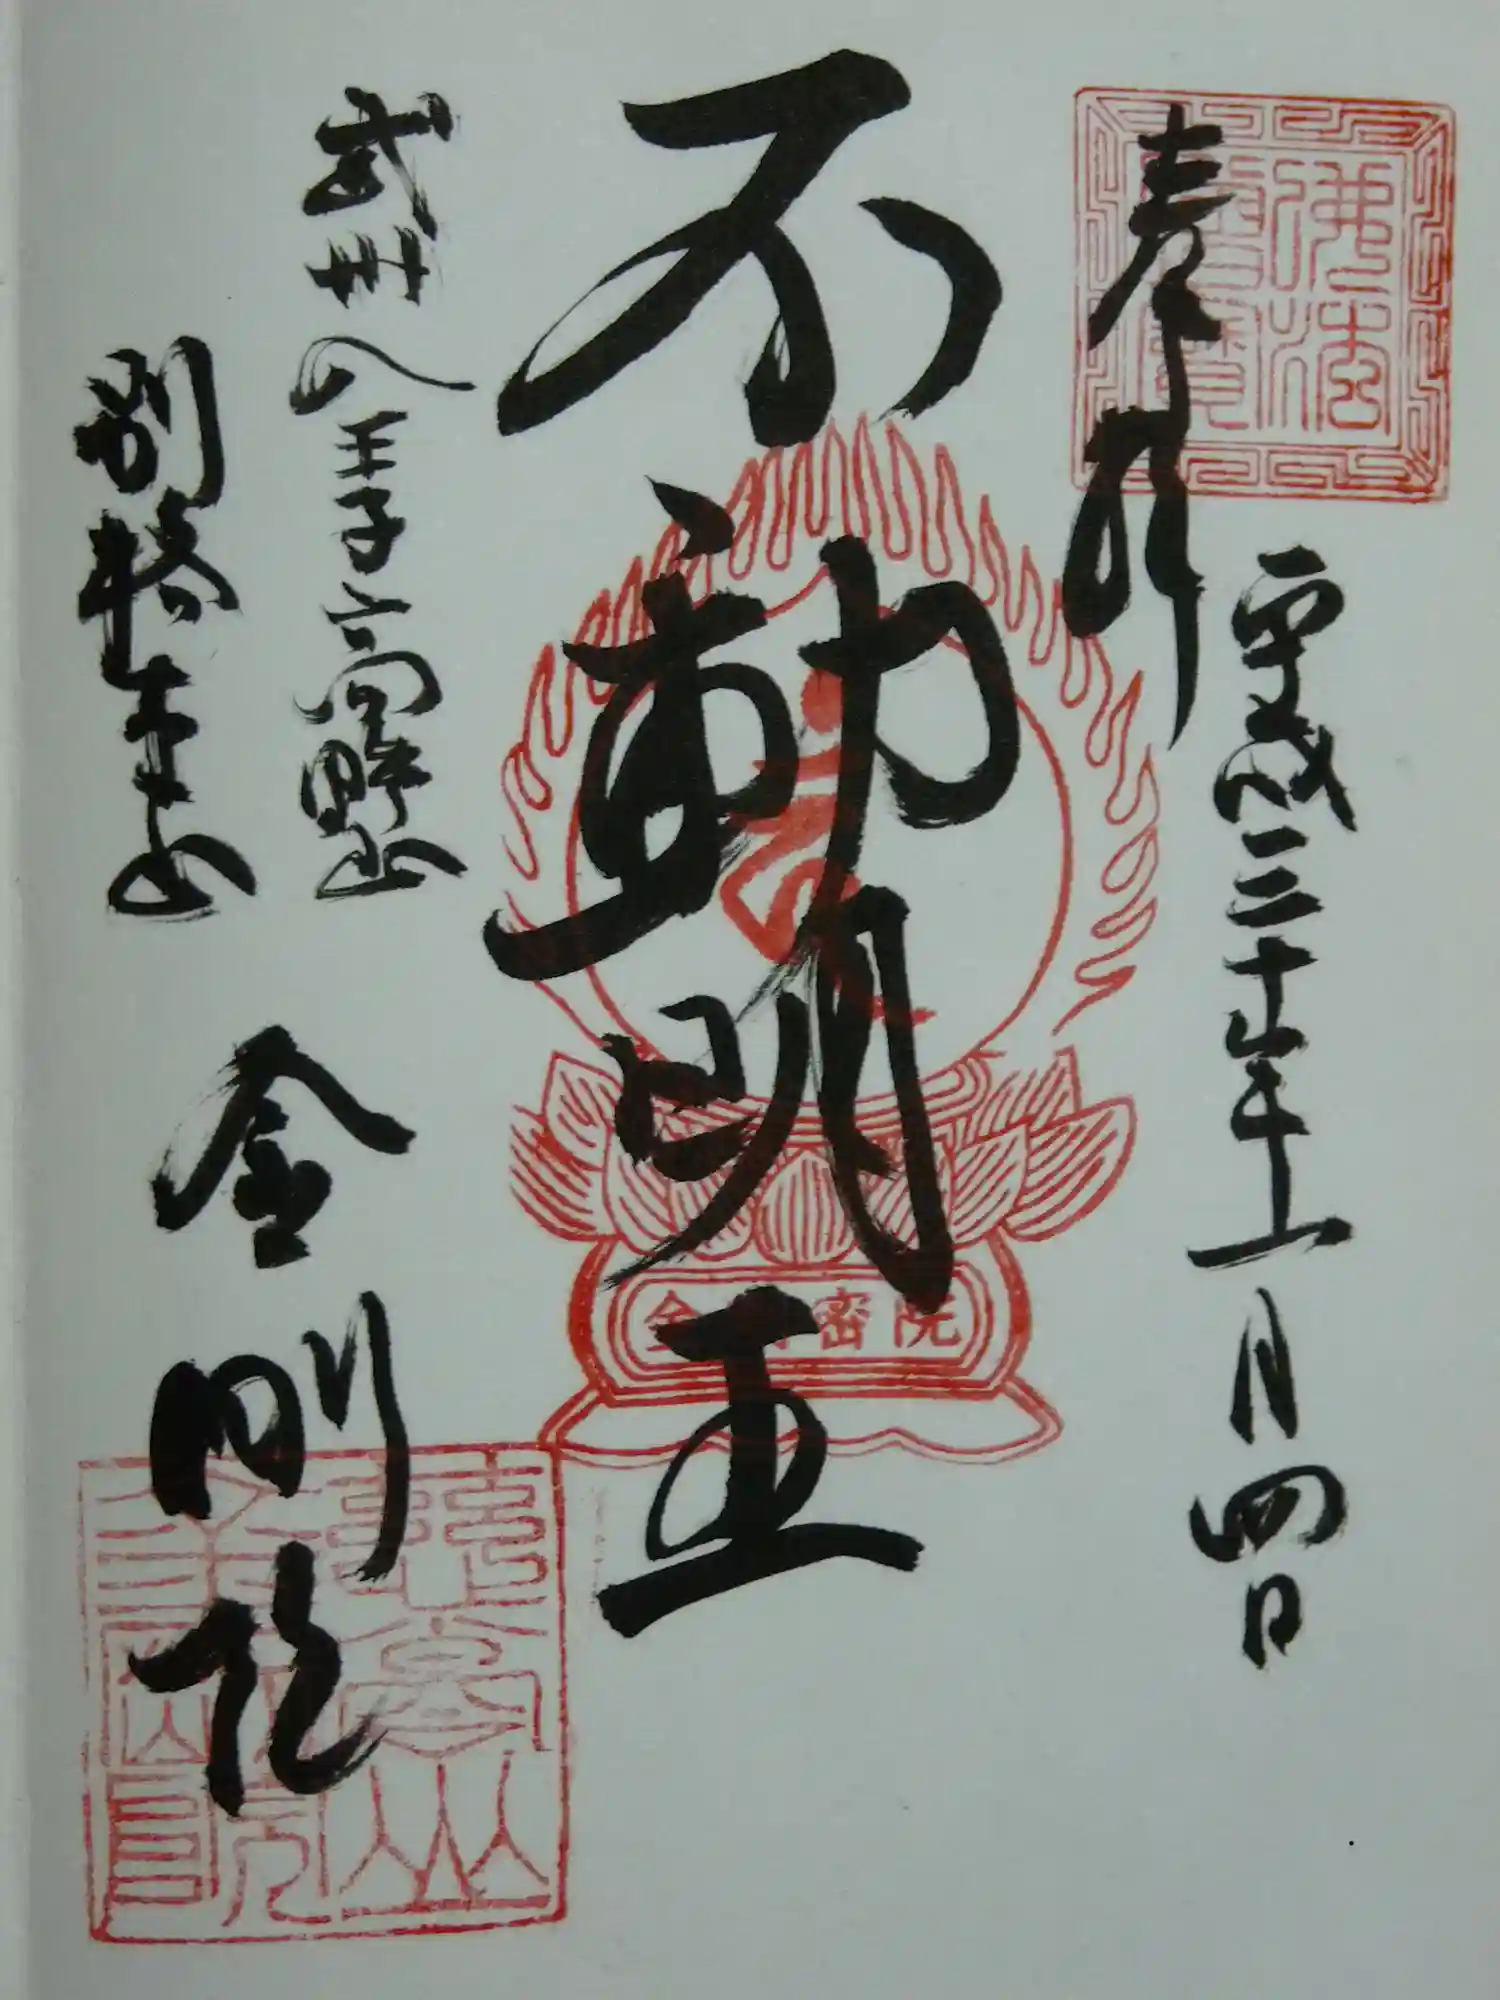 奉拝
佛法僧寶
平成三十年十一月四日
不動明王
武州八王子高野山
別格本山 金剛院
密院